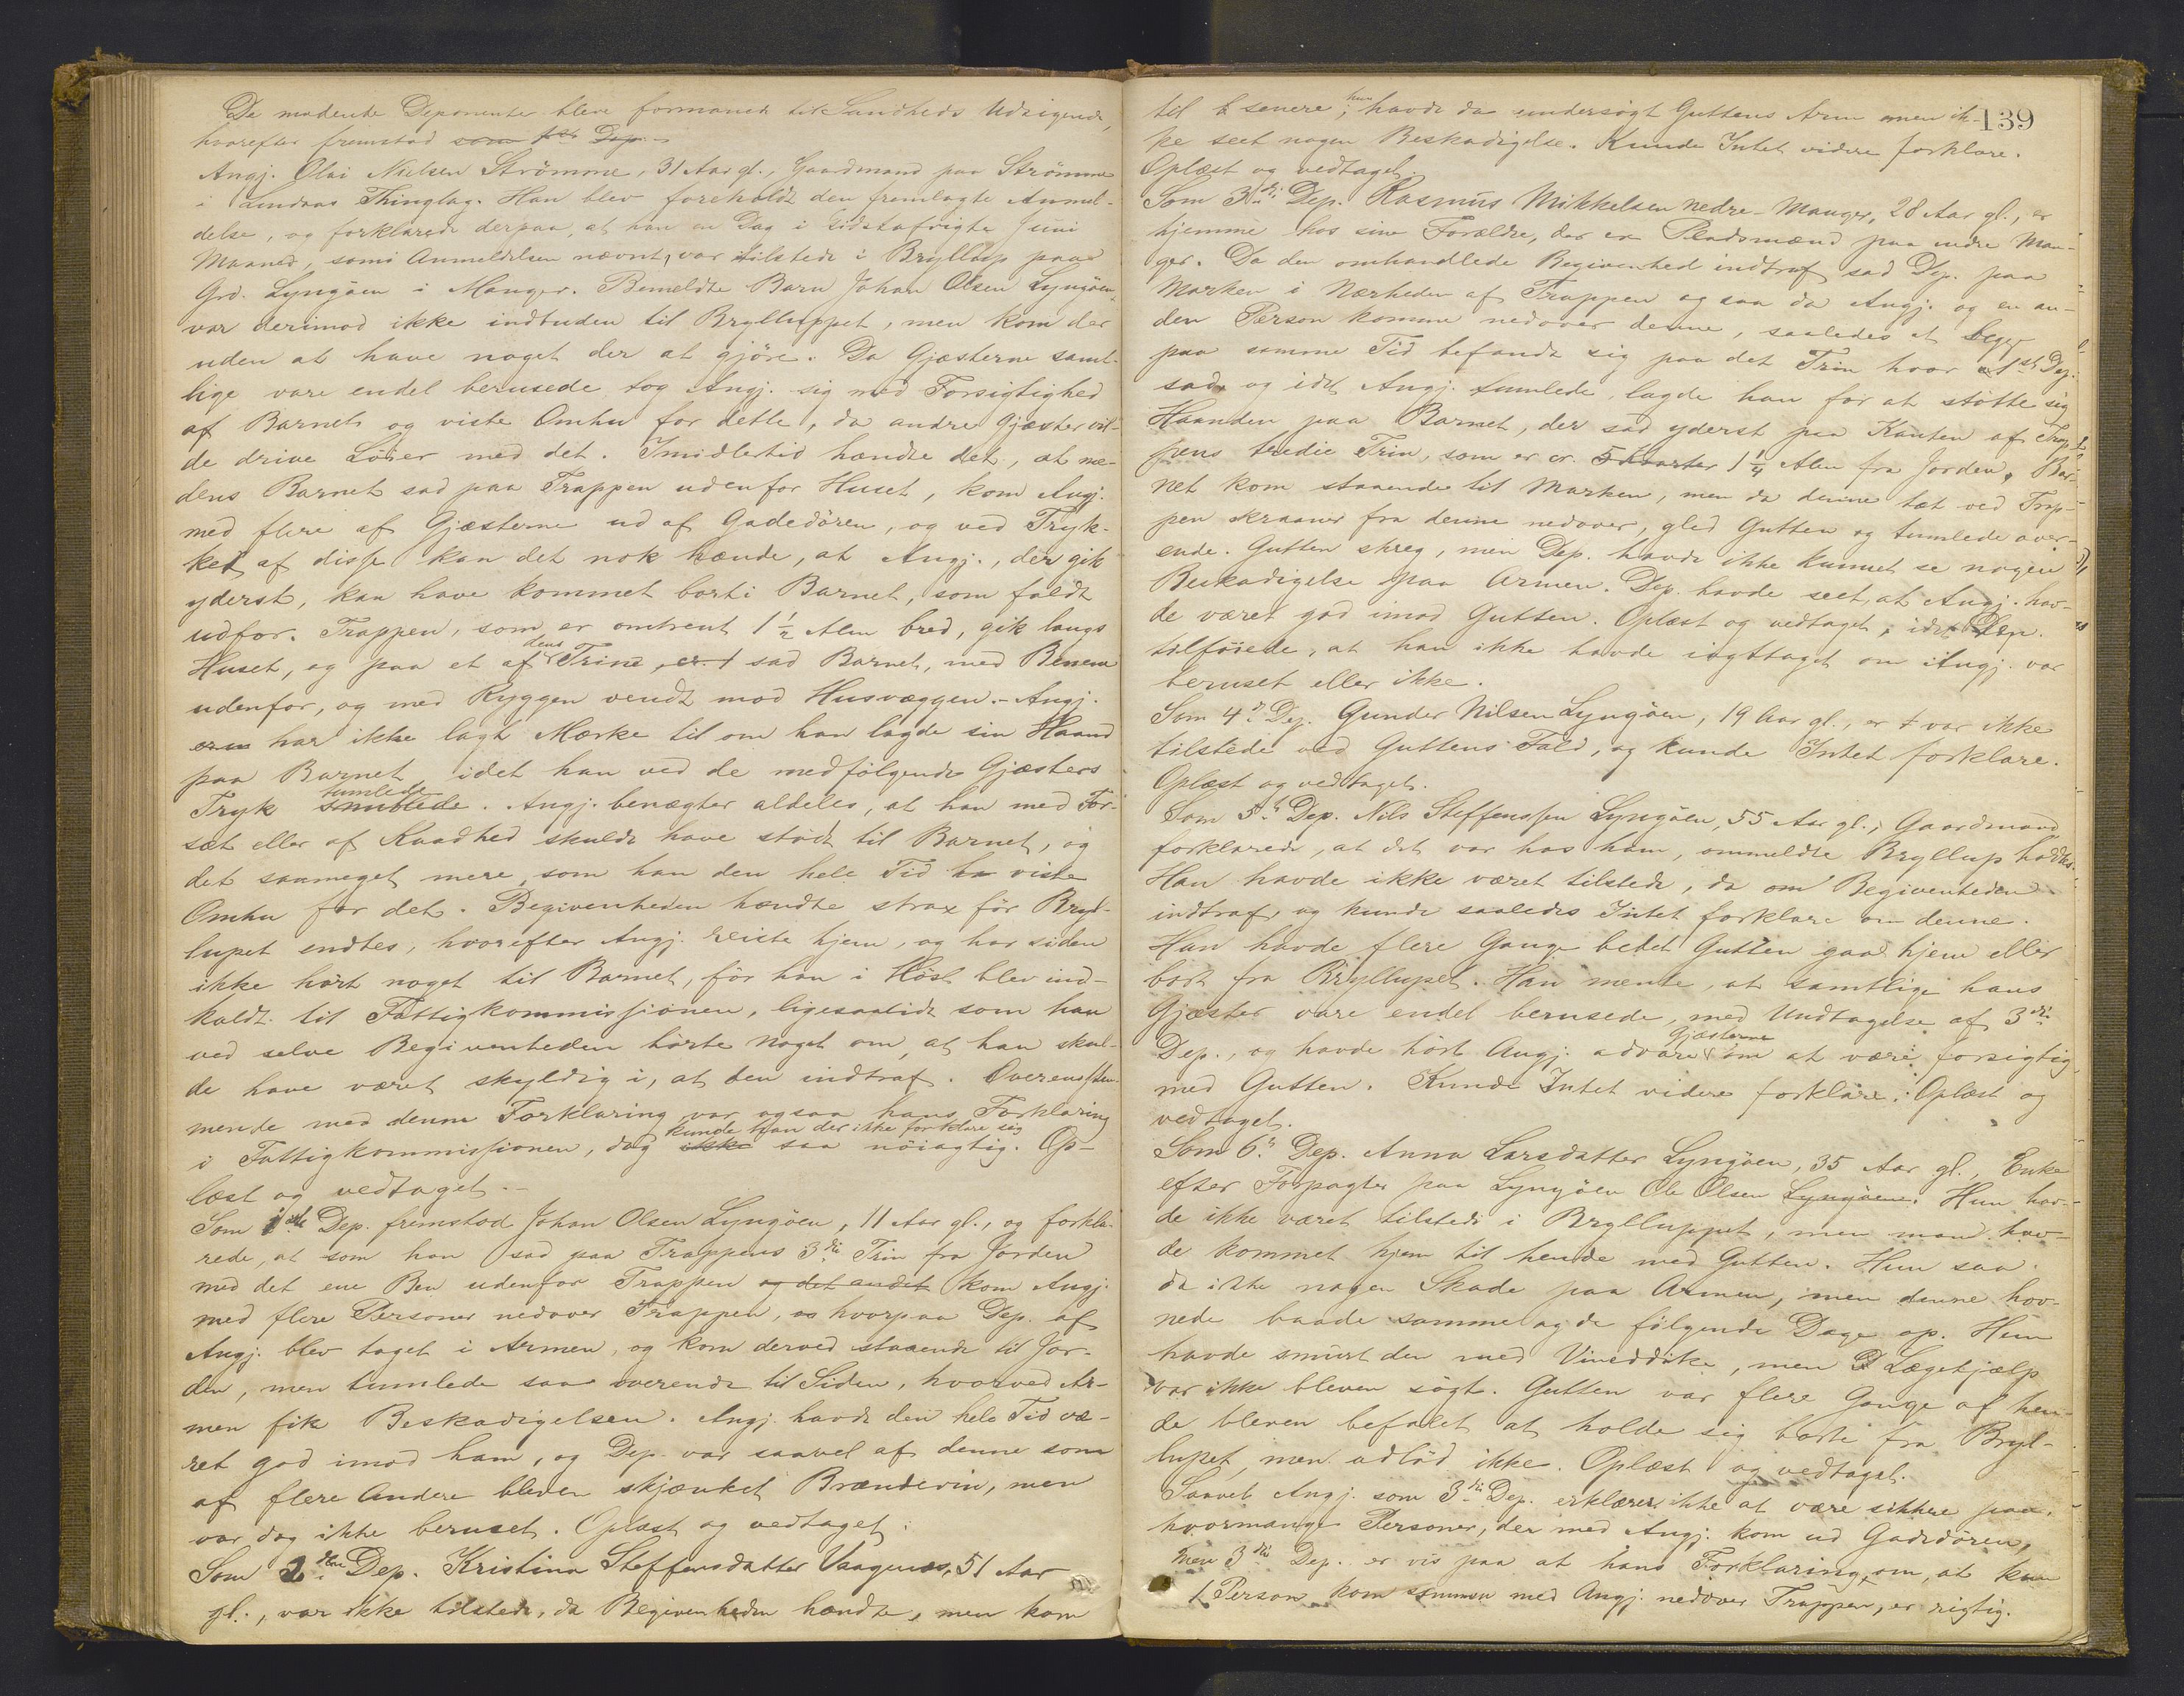 De mødende Deponenter blev formanet til Sandheds Udsigende,
hvorefter fremstod som 1ste Dep.
Angj. Olai Nielsen Strömme, 31 Aar gl., Gaardmand paa Strömme
i Lindaas Thinglag. Han blev foreholdt den fremlagte Anmel-
delse, og forklarede derpaa, at han en Dag i sidstafvigte Juni
Maaned, som i Anmeldelsen nævnt, var tilstede i Bryllup paa
Grd. Lyngöen i Manger. Bemeldte Barn Johan Olsen Lyngöen,
var derimod ikke indbuden til Brylluppet, men kom der
uden at have noget der at gjöre. Da Gjæsterne samt-
lige vare endel berusede tog Angj. sig med Forsigtighed
af Barnet og viste Omhu for dette, da andre Gjæster vil-
de drive Löier med det. Imidlertid hændte det, at me-
dens Barnet sad paa Trappen udenfor Huset, kom Angj.
med flere af Gjæsterne ud af Gadedören, og ved Tryk-
ket af disse kan det nok hænde, at Angj., der gik
yderst, kan have kommet borti Barnet, som faldt
udfor. Trappen, som er omtrent 1 1/2 Alen bred, gik langs
Huset, og paa et af dens Trine, er 1 sad Barnet, med Benene
udenfor, og med Ryggen vendt mod Husvæggen. - Angj.
har ikke lagt Mærke til om han lagde sin Haand
paa Barnet, idet han ved de medfölgende Gjæsters
Tryk snublede tumlede. Angj. benægter aldeles, at han med For-
sæt eller af Kaadhed skulde have stödt til Barnet, og
det saameget mere, som han den hele Tid ha viste
Omhu for det. Begivenheden hændte strax för Bryl-
lupet endtes, hvorefter Angj. reiste hjem, og har siden
ikke hört noget til Barnet, för han i Höst blev ind-
kaldt til Fattigkommissionen, ligesaalidt som han
ved selve Begivenheden hörte noget om, at han skul-
de have været skyldig i, at den indtraf. Overensstem-
mende med denne Forklaring var ogsaa hans Forklaring
i Fattigkommissionen, dog ikke kunde han der ikke forklare sig saa nöiagtig. Op-
læst og vedtaget. -
Som 1ste Dep. fremstod Johan Olsen Lyngöen, 11 Aar gl., og forkla-
rede, at som han sad paa Trappens 3die Trin fra Jorden
med det ene Ben udenfor Trappen og det andet kom Angj.
med flere Personer nedover Trappen, og hvorpaa Dep. af
Angj. blev taget i Armen, og kom derved staaende til Jor-
den, men tumlede saa overende til Siden, hvorved Ar-
men fik Beskadigelsen. Angj. havde den hele Tid væ-
ret god imod ham, og Dep. var saavel af denne som
af flere Andere bleven skjænket Brændevin, men
var dog ikke beruset. Oplæst og vedtaget.
Som 2den Dep. Kristina Steffensdatter Vaagenes, 51 Aar
gl., var ikke tilstede, da Begivenheden hændte, men kom
139
til senere; hun havde da undersögt Guttens Arm men ik-
ke seet nogen Beskadigelse. Kunde Intet videre forklare.
Oplæst og vedtaget.
Som 3die Dep. Rasmus Mikkelsen nedre-Manger, 28 Aar gl., er
hjemme hos sine Forældre, der er Pladsmænd paa nedre Man-
ger. Da den omhandlede Begivenhed indtraf sad Dep. paa
Marken i Nærheden af Trappen og saa da Angj. og en an-
den Person komme nedover denne, saaledes at begge
paa samme Tid befandt sig paa det Trin hvor 1ste Dep.
sad, og idet Angj. tumlede, lagde han for at stötte sig
Haanden paa Barnet, der sad yderst paa Kanten af Trap-
pens tredie Trin, som er cr. 5 kvarter 1 1/4 Alen fra Jorden. Bar-
net kom staaende til Marken, men da denne tæt ved Trap-
pen skraaner fra denne nedover, gled Gutten og tumlede over-
ende. Gutten skreg, men Dep. havde ikke kunnet se nogen
Beskadigelse paa Armen. Dep. havde seet, at Angj. hav-
de været god imod Gutten. Oplæst og vedtaget, idet Dep.
tilföiede, at han ikke havde iagttaget om Angj. var
beruset eller ikke.
Som 4de Dep. Gunder Nilsen Lyngöen, 19 Aar gl., er var ikke
tilstede ved Guttens Fald, og kunde Intet forklare.
Oplæst og vedtaget.
Som 5te Dep. Nils Steffenssen Lyngöen, 55 Aar gl., Gaardmand
forklarede, at det var hos ham, ommeldte Bryllup holdtes.
Han havde ikke været tilstede, da om Begivenheden
indtraf, og kunde saaledes Intet forklare om denne.
Han havde flere Gange bedet Gutten gaa hjem eller
bort fra Bryllupet. Han mente, at samtlige hans
Gjæster vare endel berusede, med Undtagelse af 3die
Dep., og havde hört Angj. advare Gjæsterne om at være forsigtig
med Gutten. Kunde Intet videre forklare. Oplæst og
vedtaget.
Som 6te Dep. Anna Larsdatter Lyngöen, 35 Aar gl., Enke
efter Forpagter paa Lyngöen Ole Olsen Lyngöen. Hun hav-
de ikke været tilstede i Brylluppet, men man hav-
de kommet hjem til hende med Gutten. Hun saa
da ikke nogen Skade paa Armen, men denne hov-
nede baade samme og de fölgende Dage op. Hun
havde smurt den med Vineddike, men Lægehjælp
var ikke bleven sögt. Gutten var flere Gange af hen-
de bleven befalet at holde sig borte fra Bryl-
lupet, men adlöd ikke. Oplæst og vedtaget.
Saavel Angj. som 3die Dep. erklærer ikke at være sikkre paa,
hvormange Personer, der med Angj. kom ud Gadedören,
men 3die Dep. er vis paa at hans Forklaring om, at kun
1 Person kom sammen med Angj. nedover Trappen, er rigtig.